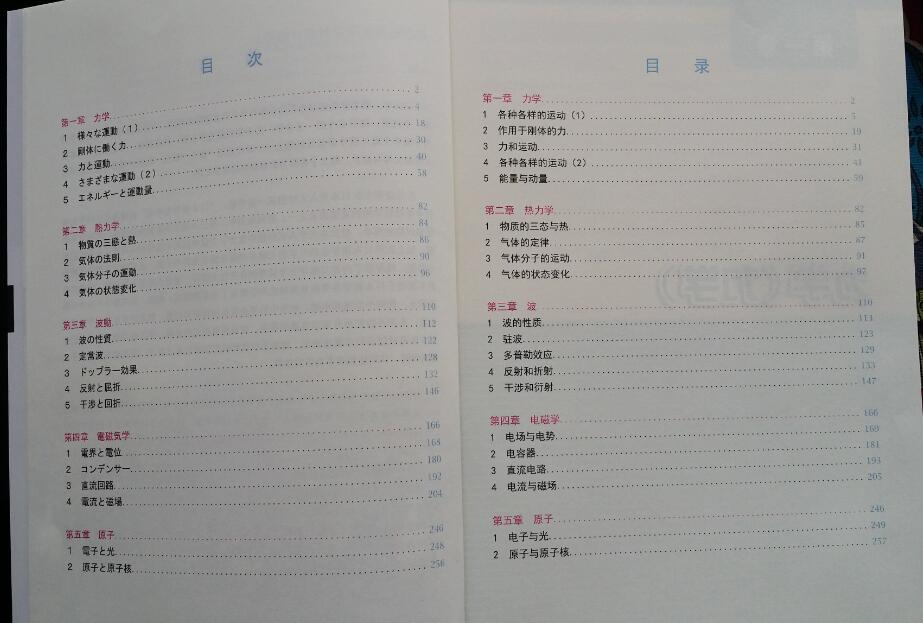 目 次
第一章 力学 2
1 様々な運動(1) 4
2 剛体に働く力 18
3 力と運動 30
4 さまざまな運動(2) 40
5 エネルギーと運動量 58
第二章 熱力学 82
1 物質の三態と熱 84
2 気体の法則 86
3 気体分子の運動 90
4 気体の状態変化 96
第三章 波動 110
1 波の性質 112
2 定常波 122
3 ドップラー効果 128
4 反射と屈折 132
5 干渉と回折 146
第四章 電磁気学 166
1 電界と電位 168
2 コンデンサー 180
3 直流回路 192
4 電流と磁場 204
第五章 原子 246
1 電子と光 248
2 原子と原子核 256
目 录
第一章 力学 2
1 各种各样的运动(1) 5
2 作用于刚体的力 19
3 力和运动 31
4 各种各样的运动(2) 41
5 能量与动量 59
第二章 热力学 82
1 物质的三态与热 85
2 气体的定律 87
3 气体分子的运动 91
4 气体的状态变化 97
第三章 波 110
1 波的性质 113
2 驻波 123
3 多普勒效应 129
4 反射和折射 133
5 干涉和衍射 147
第四章 电磁学 166
1 电场与电势 169
2 电容器 181
3 直流电路 193
4 电流与磁场 205
第五章 原子 246
1 电子与光 249
2 原子与原子核 257